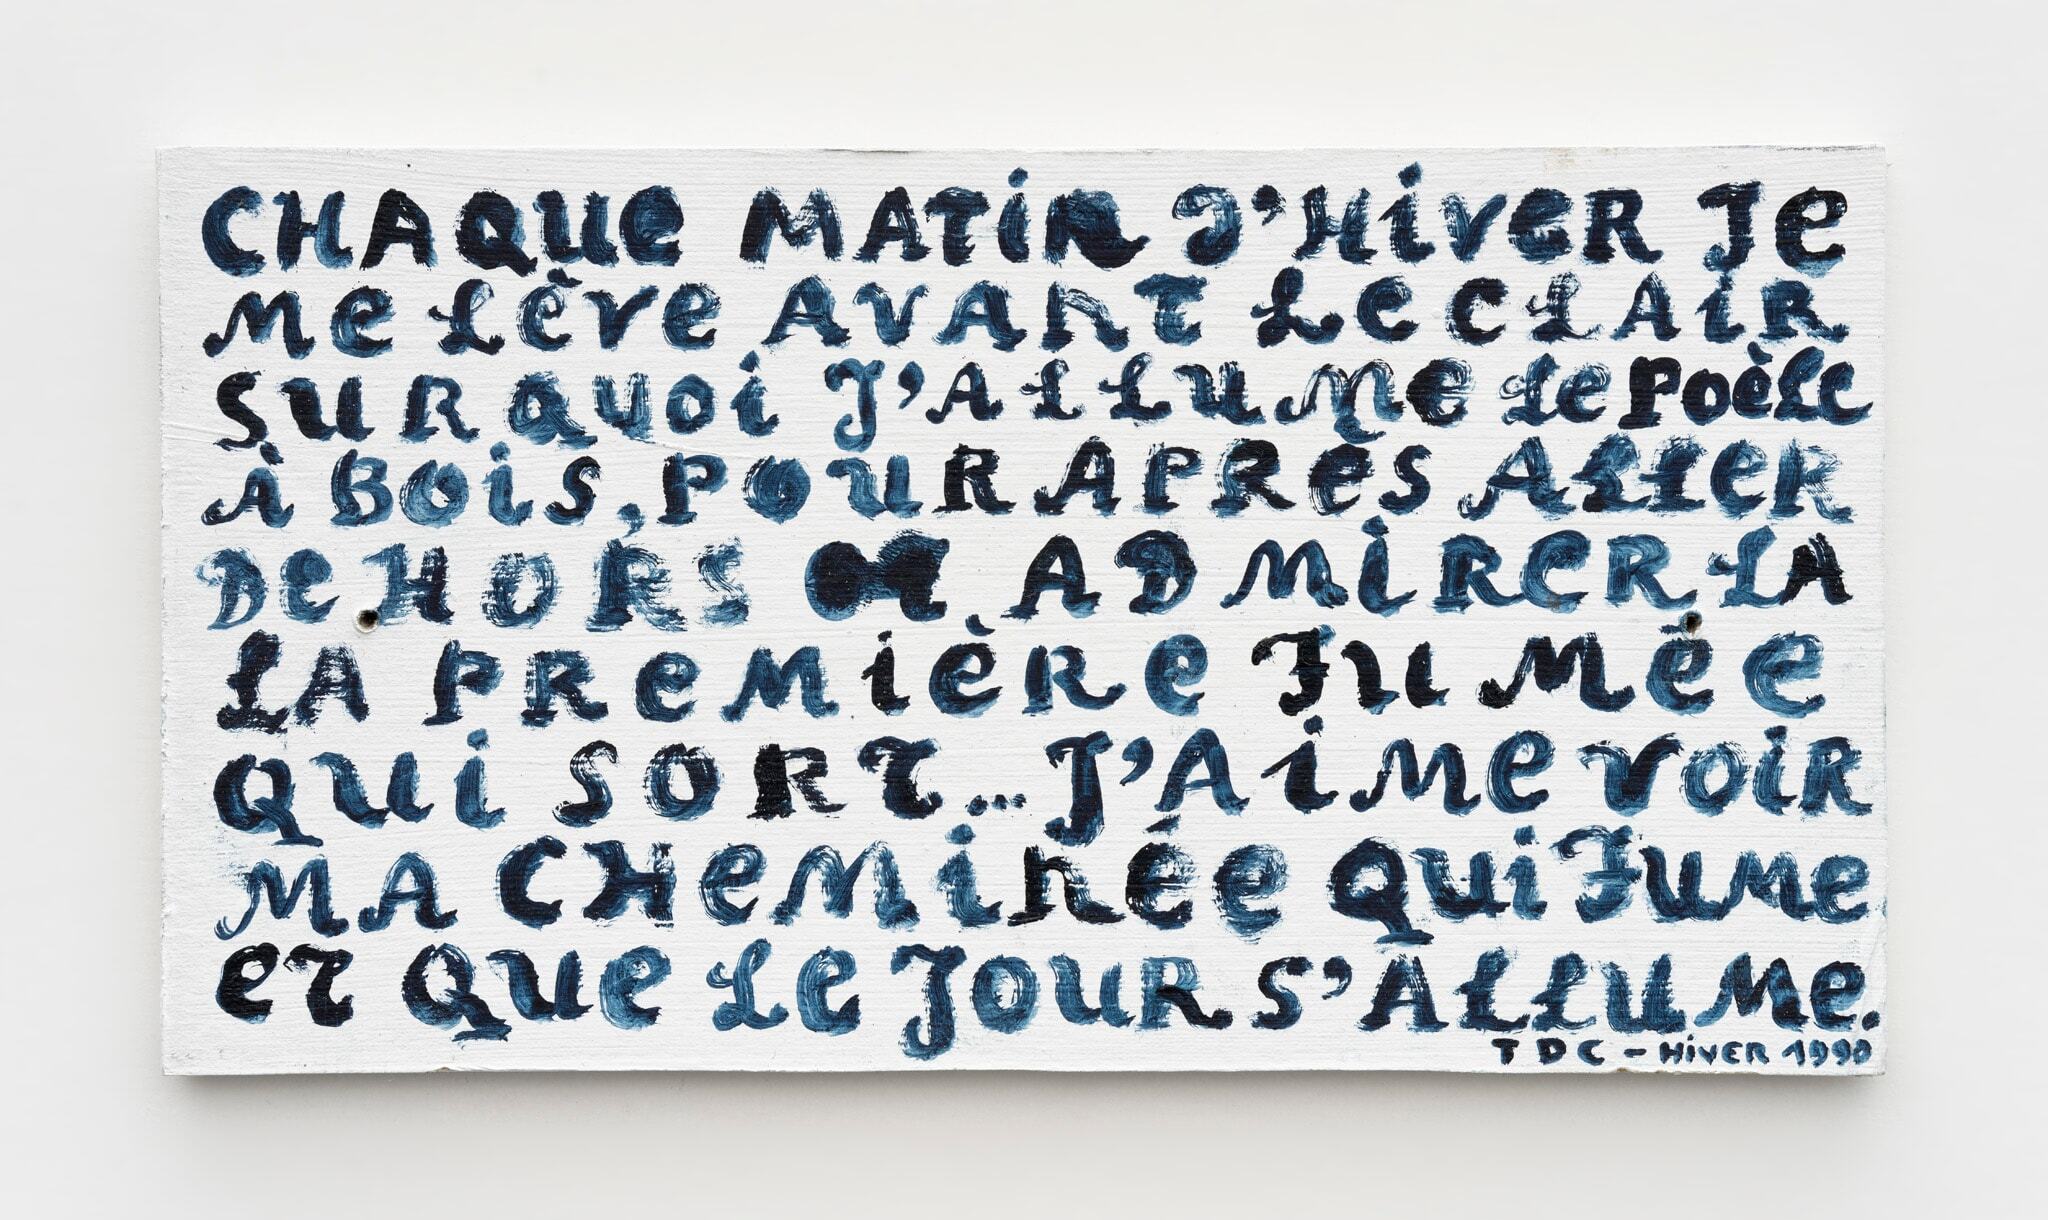 CHAQUE MATIN J'HIVER JE
ME LÈVE AVANT LE CLAIR
SUR QUOI J'ALLUME LE POÈLE
À BOIS, POUR APRÈS ALLER
DEHORS ADMIRER LA
LA PREMIÈRE FUMÉE
QUI SORT... J'AIME VOIR
MA CHEMINÉE QUI FUME
ET QUE LE JOUR S'ALLUME.
TDC - HIVER 1990